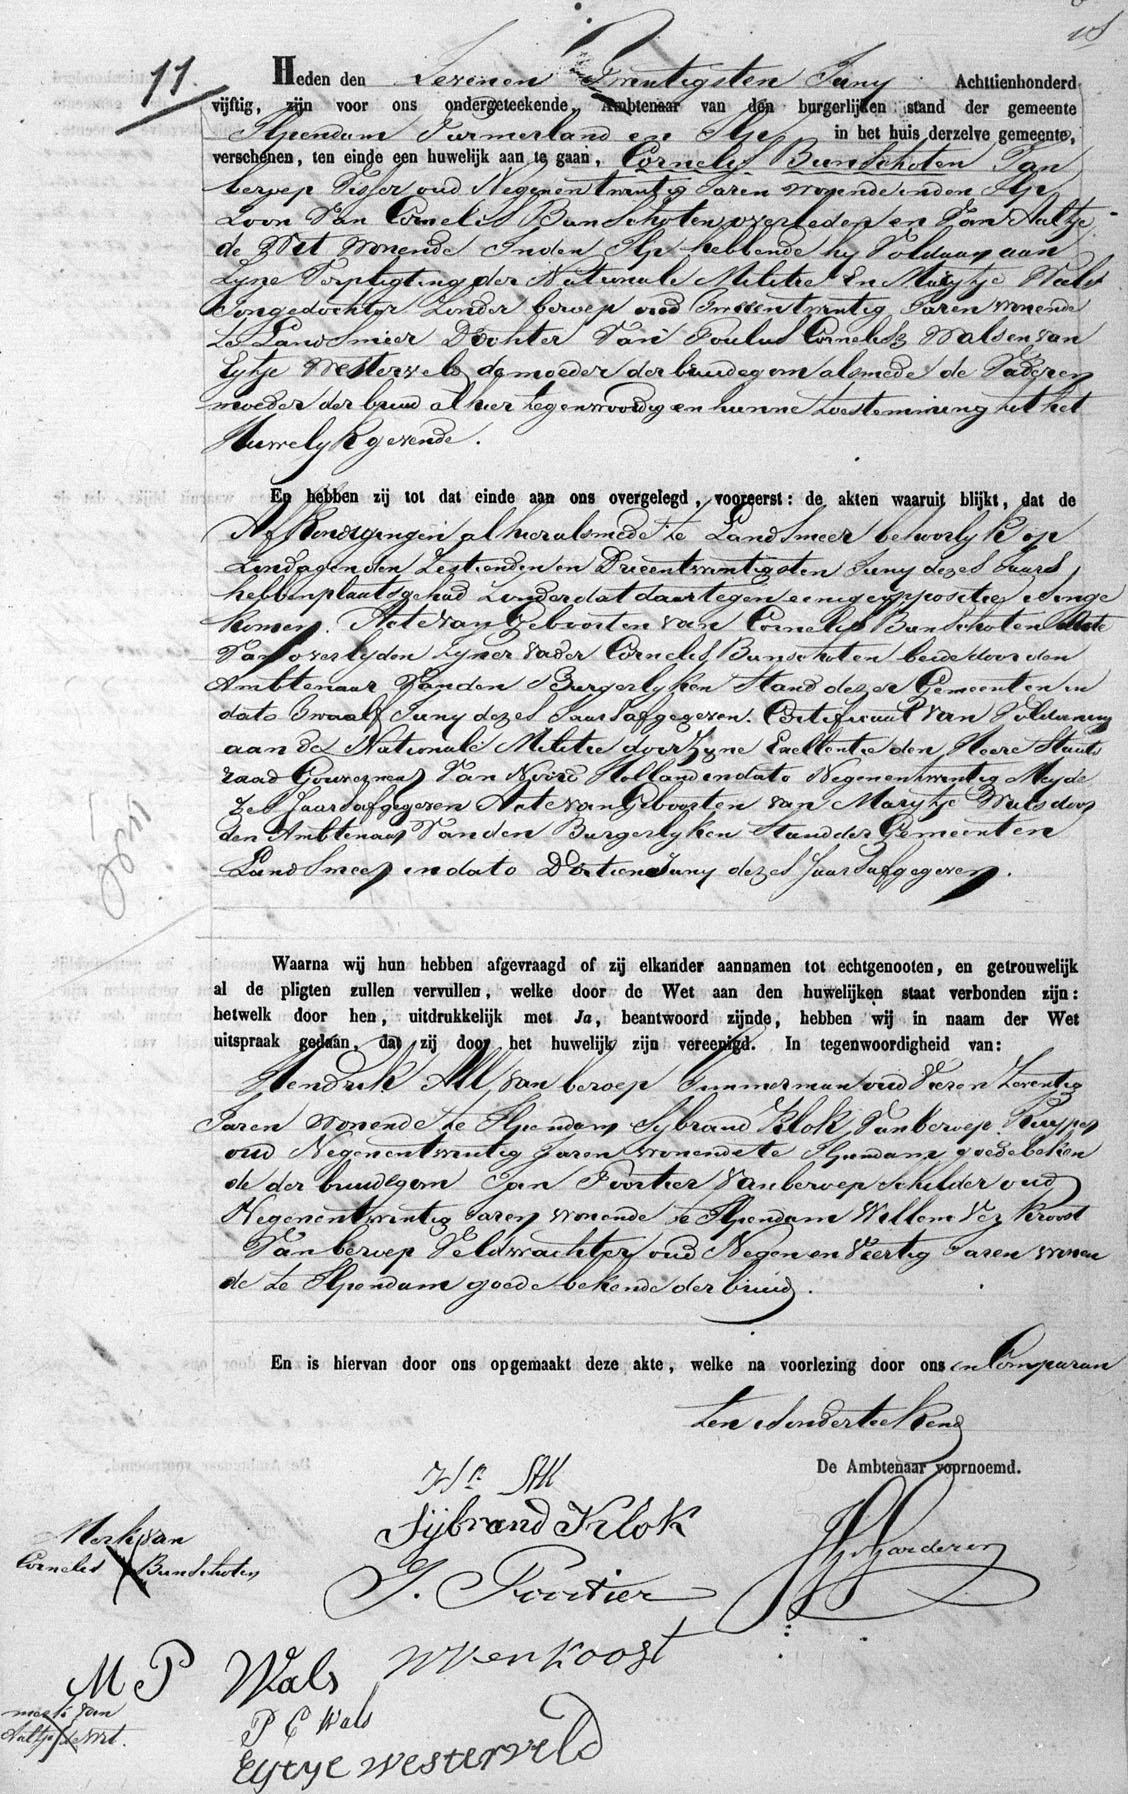 11.
Heden den Sevenen Twentigsten Juny Achttienhonderd
vijftig, zijn voor ons ondergeteekende, Ambtenaar van den burgerlijken stand der gemeente
Ilpendam Purmerland en Ilp, in het huis derzelve gemeente,
verschenen, ten einde een huwelijk aan te gaan, Cornelis Bunschoten Van
beroep Visser oud Negenentwintig Jaren wonende inden Ilp
Zoon Van Cornelis Bunschoten overleden en Van Aaltje
de Wit wonende Inden Ilp hebbende hy Voldaan aan
Zyne Verpligting der Nationale Militie En Marytje Wals
Jongedochter Zonder beroep oud Tweeentwintig Jaren wonende
te Landsmeer Dochter Van Poulus Cornelisz Wals en van
Eytje Westerveld de moeder der bruidegom alsmede de Vader en
moeder der bruid alhier tegenwoordig en hunne toestemming tot het
Huwelyk gevende.
En hebben zij tot dat einde aan ons overgelegd, vooreerst: de akten waaruit blijkt, dat de
Afkondigingen alhier alsmede te Landsmeer behoorlyk op
Zondagen den Zestienden en Drieentwintigsten Juny dezes Jaars
hebben plaats gehad Zonder dat daartegen eenige oppositie is inge
komen. Acte van Geboorten van Cornelis Bunschoten Acte
Van overlyden Zyner Vader Cornelis Bunschoten beide door den
Ambtenaar Vanden Burgerlyken Stand dezer Gemeenten in
dato twaalf Juny dezes Jaars afgegeven. Certificaat van Voldoening
aan de Nationale Militie door Zyne Excellentie den Heere Staats
raad Gouverneur Van Noord Holland in dato Negenentwintig Mey de
zes Jaars afgegeven Acte van Geboorten van Marytje Wals door
den Ambtenaar Vanden Burgerlyken Stand der Gemeenten
Landsmeer in dato Dertien Juny dezes Jaars afgegeven.
Waarna wij hun hebben afgevraagd of zij elkander aannamen tot echtgenooten, en getrouwelijk
al de pligten zullen vervullen, welke door de Wet aan den huwelijken staat verbonden zijn:
hetwelk door hen, uitdrukkelijk met Ja, beantwoord zijnde, hebben wij in naam der Wet
uitspraak gedaan, dat zij door het huwelijk zijn vereenigd. In tegenwoordigheid van:
Hendrik All, van beroep Timmerman oud Vieren Zeventig
Jaren wonende te Ilpendam Sybrand Klok, Van beroep Kuyper
oud Negenentwintig Jaren wonende te Ilpendam goede beken
de der bruidegom Jan Poortier Van beroep Schilder oud
Negenentwintig Jaren wonende te Ilpendam Willem Ver Kroost
Van beroep Veldwachter oud Negen en Veertig Jaren wonen
de te Ilpendam goede bekende der bruid.
En is hiervan door ons opgemaakt deze akte, welke na voorlezing door ons en Comparan
ten is onderteekend
De Ambtenaar voornoemd.
Hk All
Sijbrand Klok
Merk van
Cornelis X Bunschoten
J. Poortier
M P Wals
merk van
Aaltje X de Wit.
P C Wals
Eytye Westerveld